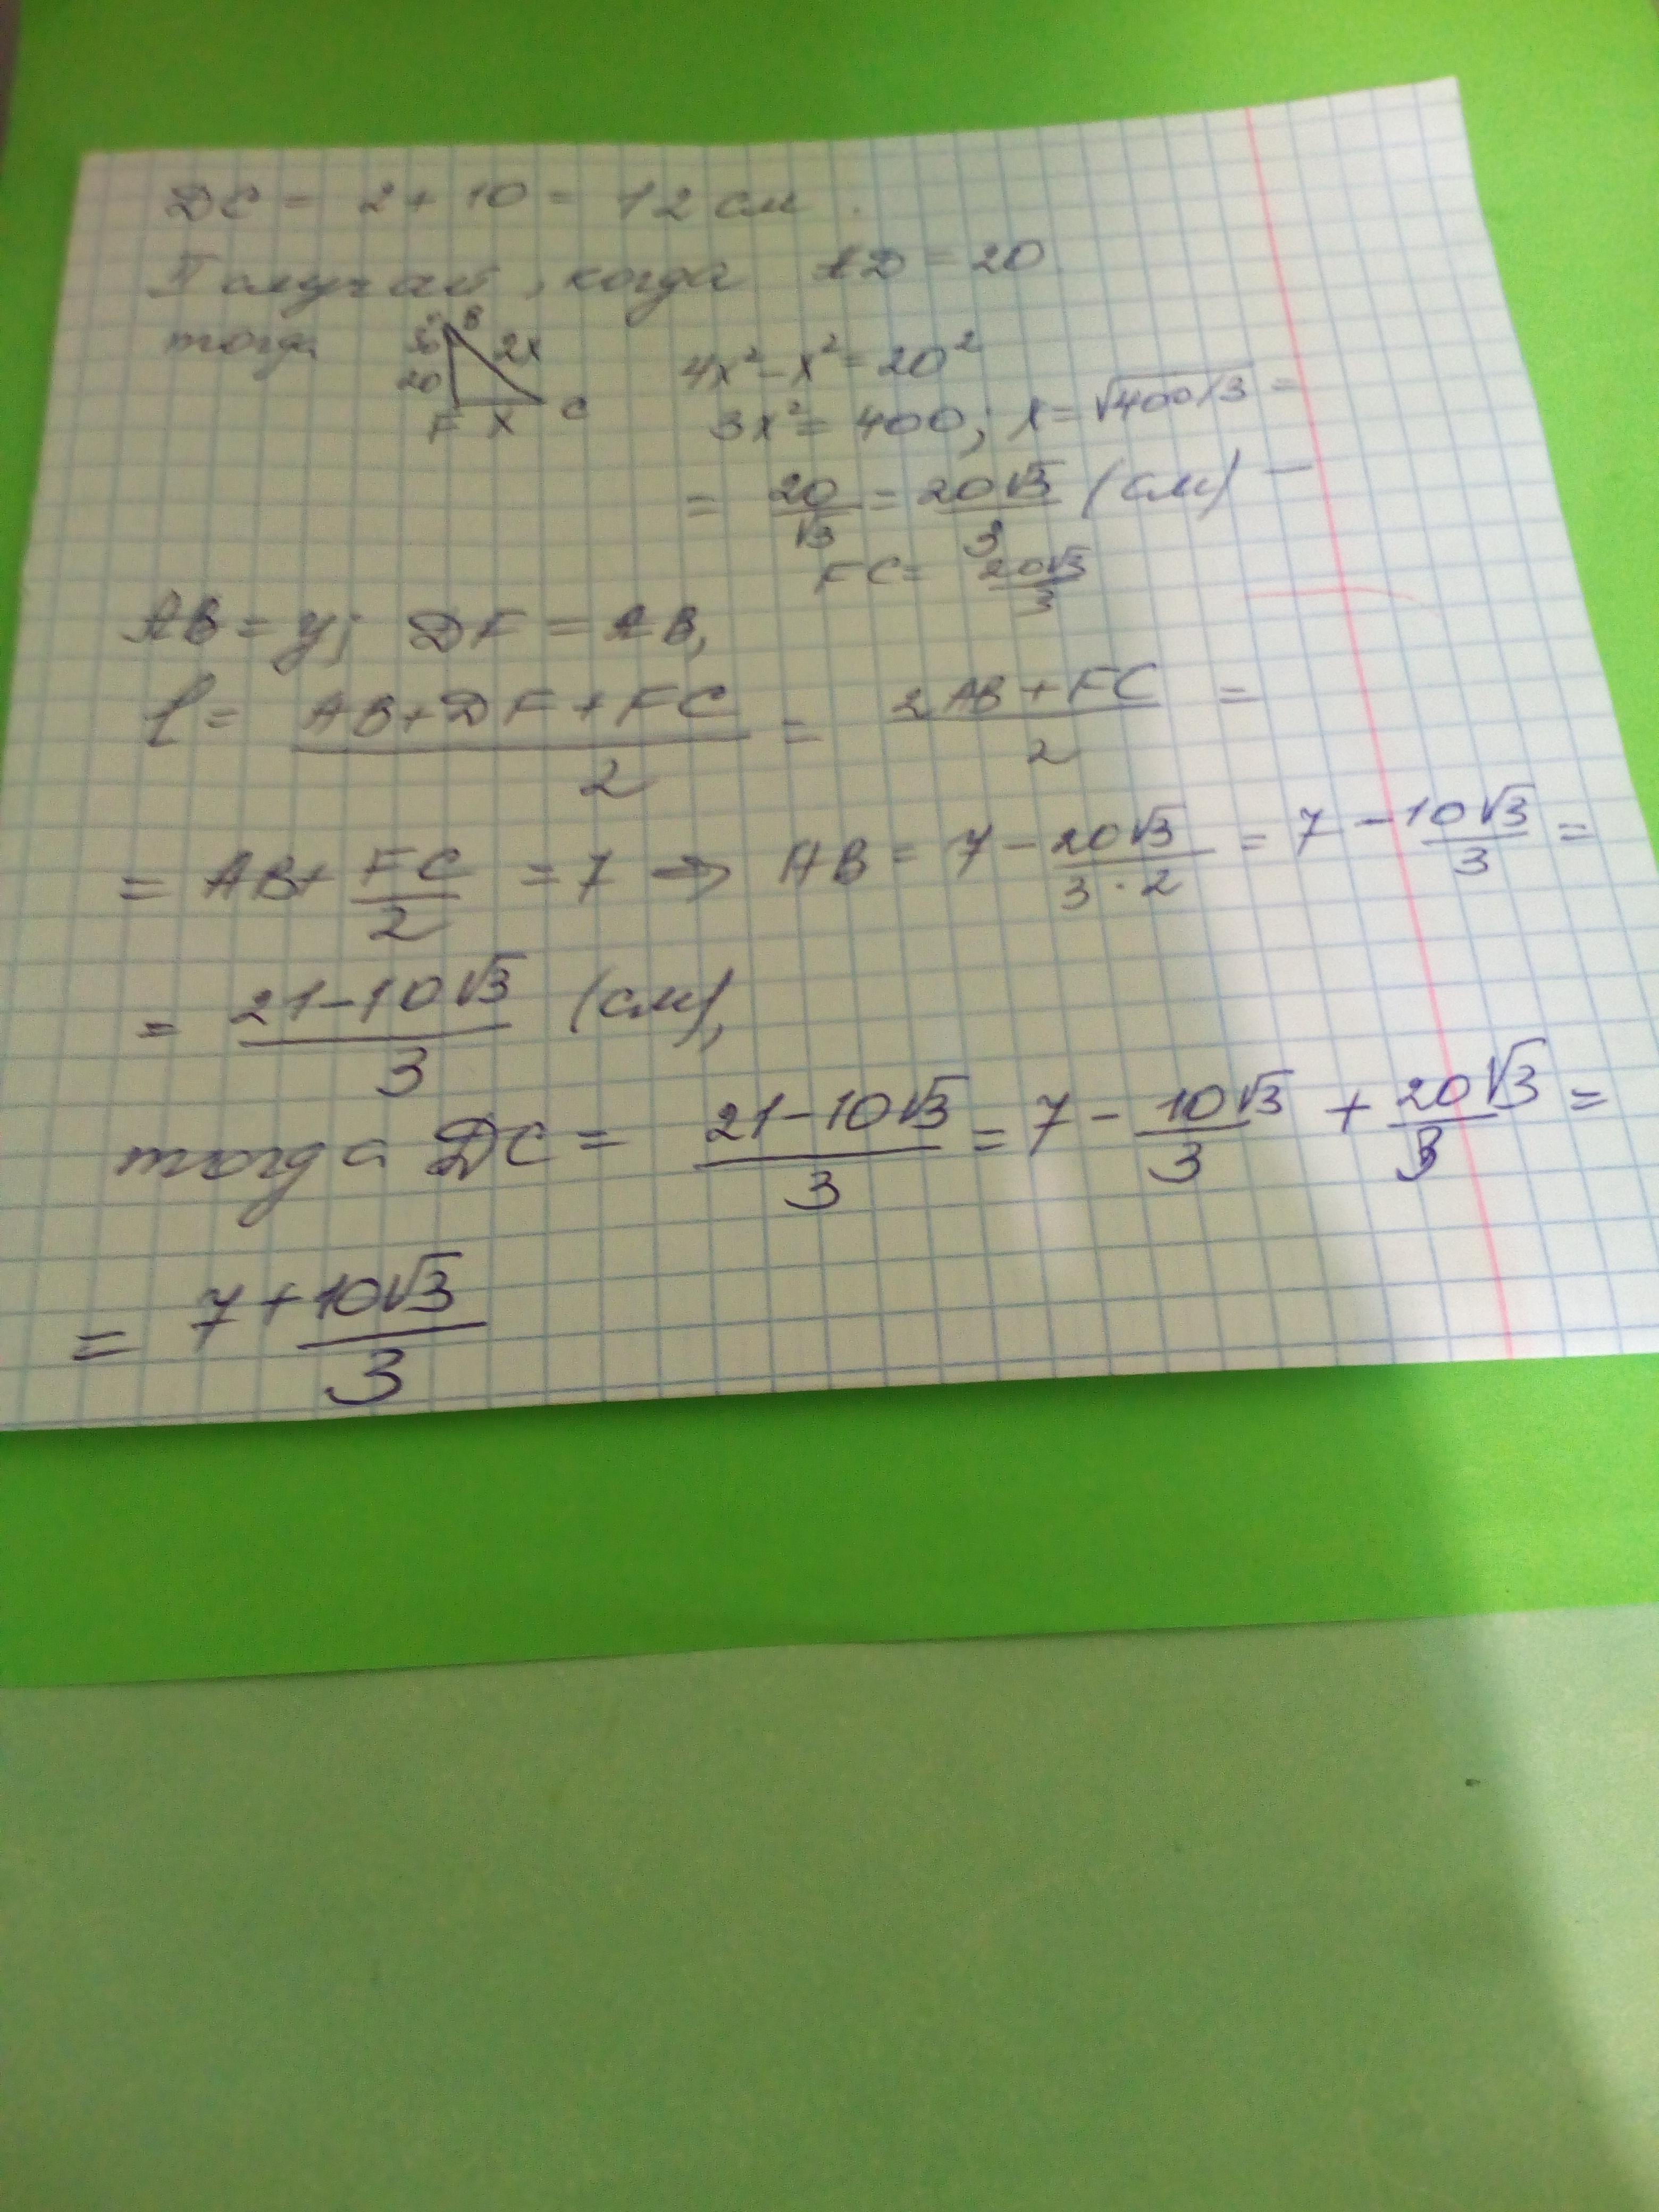 DC = 2 + 10 = 12 см.
II случай, когда AD = 20
тогда 30° B 2x 20 F x C 4x² - x² = 20²
3x² = 400; x = √400/3 =
= 20/√3 = 20√3/3 (см) —
FC = 20√3/3
AB = y; DF = AB,
l = (AB + DF + FC)/2 = (2AB + FC)/2 =
= AB + FC/2 = 7 → AB = 7 - 20√3/(3·2) = 7 - 10√3/3 =
= (21 - 10√3)/3 (см),
тогда DC = (21 - 10√3)/3 = 7 - 10√3/3 + 20√3/3 =
= 7 + 10√3/3